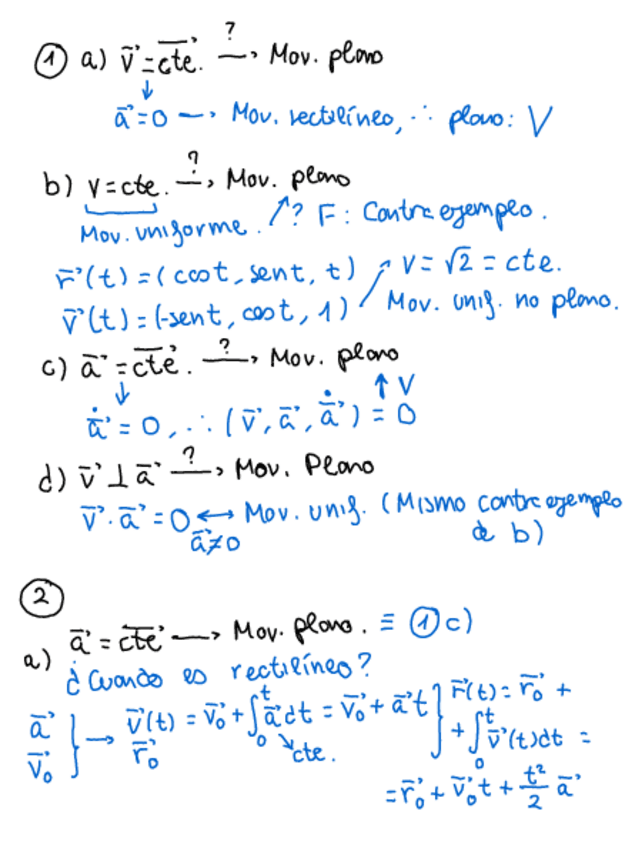 ① a) v⃗ = cte⃗. —?→ Mov. plano
↓
a⃗ = 0 → Mov. rectilíneo, ∴ plano: V
b) v = cte. —?→ Mov. plano
Mov. uniforme. ↗? F: Contraejemplo.
r⃗(t) = (cost, sent, t) ↗ v = √2 = cte.
v⃗(t) = (-sent, cost, 1) Mov. unif. no plano.
c) a⃗ = cte⃗. —?→ Mov. plano
↓ ↑ V
ȧ⃗ = 0, ∴ (v⃗, a⃗, ȧ⃗) = 0
d) v⃗ ⊥ a⃗ —?→ Mov. Plano
v⃗ · a⃗ = 0 ↔ Mov. unif. (Mismo contraejemplo
a⃗ ≠ 0 de b)
②
a) a⃗ = cte⃗ → Mov. plano. ≡ ① c)
¿Cuando es rectilíneo?
a⃗ v⃗₀ } → v⃗(t) = v⃗₀ + ∫₀ᵗ a⃗ dt = v⃗₀ + a⃗ t } r⃗(t) = r⃗₀ +
r⃗₀ cte. + ∫₀ᵗ v⃗(t) dt =
= r⃗₀ + v⃗₀ t + t²/2 a⃗